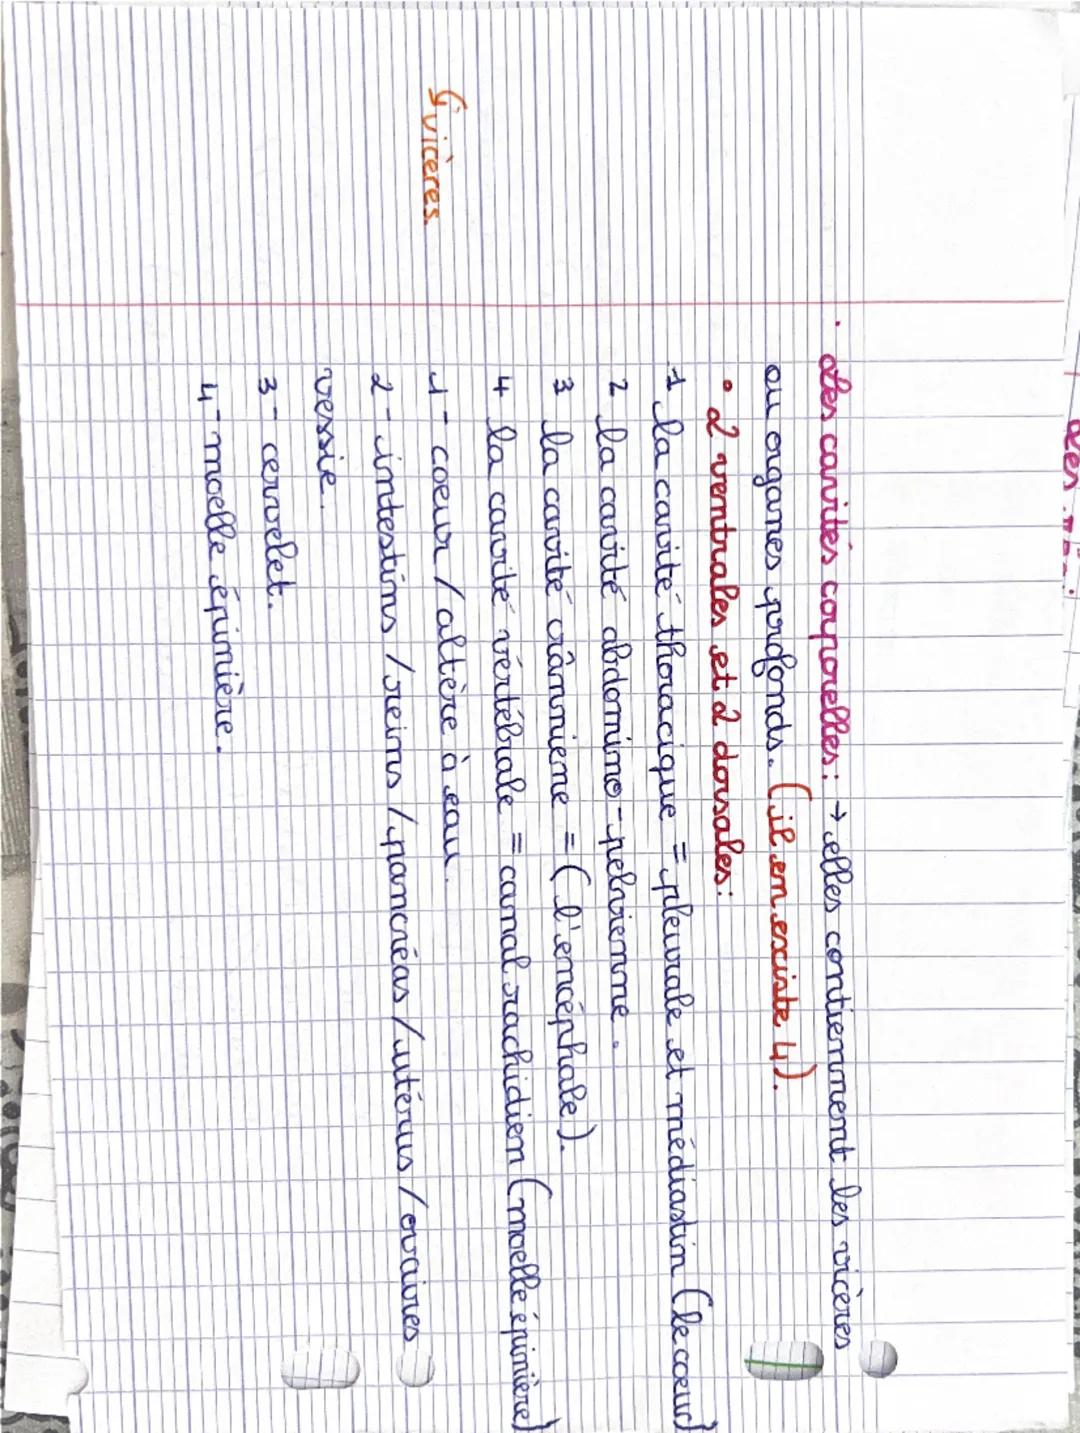 • Les cavités corporelles : → elles contiennent les vicères
ou organes profonds. (il en existe 4).
• 2 ventrales et 2 dorsales :
1 la cavité thoracique = pleurale et médiastin (le coeur)
2 la cavité abdomino-pelvienne.
3 la cavité crânniene = (l'encéphale).
4 la cavité vértébrale = canal rachidien (moelle épinière)
↳ vicères.
1 - coeur / altère à eau.
2 - intestins / reins / pancréas / utérus / ovaires
vessie.
3 - cervelet.
4 - moelle épinière.